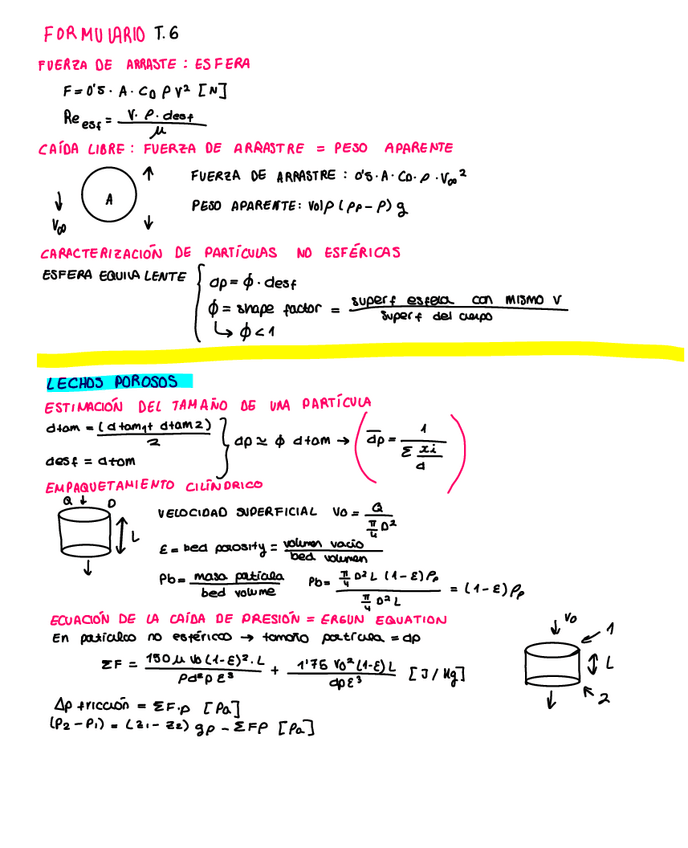 FORMULARIO T.6
FUERZA DE ARRASTE : ESFERA
F = 0'5 · A · CD ρ V² [N]
Re esf = V · ρ · desf / μ
CAÍDA LIBRE : FUERZA DE ARRASTRE = PESO APARENTE
A
V∞
FUERZA DE ARRASTRE : 0'5 · A · CD · ρ · V∞²
PESO APARENTE: Volp (ρp - ρ) g
CARACTERIZACIÓN DE PARTÍCULAS NO ESFÉRICAS
ESFERA EQUIVALENTE
dp = ϕ · desf
ϕ = shape factor = superf esfera con MISMO V / superf del cuerpo
↳ ϕ < 1
LECHOS POROSOS
ESTIMACIÓN DEL TAMAÑO DE UNA PARTÍCULA
dtam = (dtam1 + dtam2) / 2
desf = dtam
dp ≃ ϕ dtam → ( d̅p̅ = 1 / Σ xi/d )
EMPAQUETAMIENTO CILÍNDRICO
Q D
L
VELOCIDAD SUPERFICIAL V0 = Q / π/4 D²
ε = bed porosity = volumen vacío / bed volumen
ρb = masa partícula / bed volume
ρb = π/4 D² L (1-ε) ρp / π/4 D² L = (1-ε) ρp
ECUACIÓN DE LA CAÍDA DE PRESIÓN = ERGUN EQUATION
En partículas no esféricas → tamaño partícula = dp
ΣF = 150 μ V0 (1-ε)² · L / ρd²p ε³ + 1'75 V0² (1-ε) L / dp ε³ [J/kg]
V0
1
L
2
Δp fricción = ΣF·ρ [Pa]
(P2 - P1) = (z1 - z2) gρ - ΣFρ [Pa]